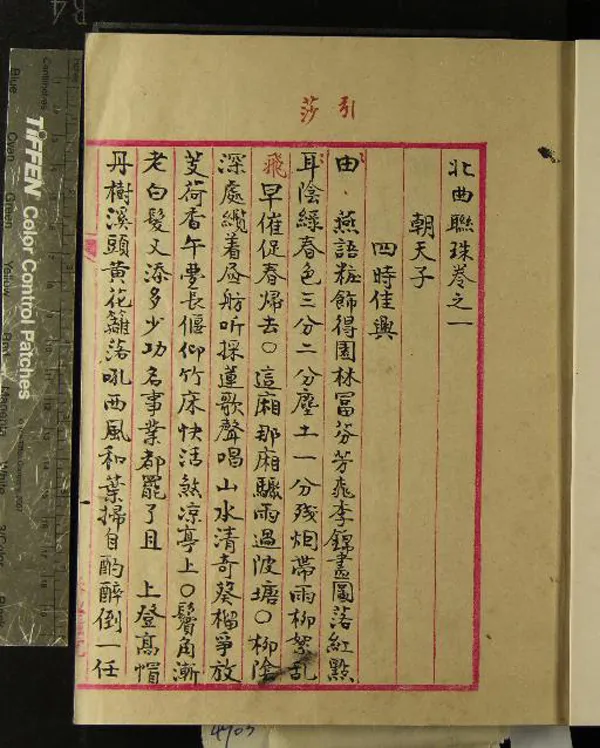 引莎
北曲聯珠卷之一
朝天子
四時佳興
由、燕語粧飾得園林冨芬芳桃李錦畫圖落紅點
耳陰綠春色三分二分塵土一分残烟帶雨柳絮乱
飛早催促春歸去〇這廂那廂驟雨過陂塘〇柳陰
深處纜着昼舫听採蓮歌聲唱山水清奇葵榴爭放
芰荷香午夢長偃仰竹床快活煞凉亭上〇鬢角漸
老白髮又添多少功名事業都罷了且 上登高帽
丹樹溪頭黄花籬落吼西風和葉掃自酌醉倒一任
TIFFEN Color Control Patches
Centimetres
Blue
Cyan
Green
Yellow
Red
Magenta
White
3/Color
Black
R4
4703